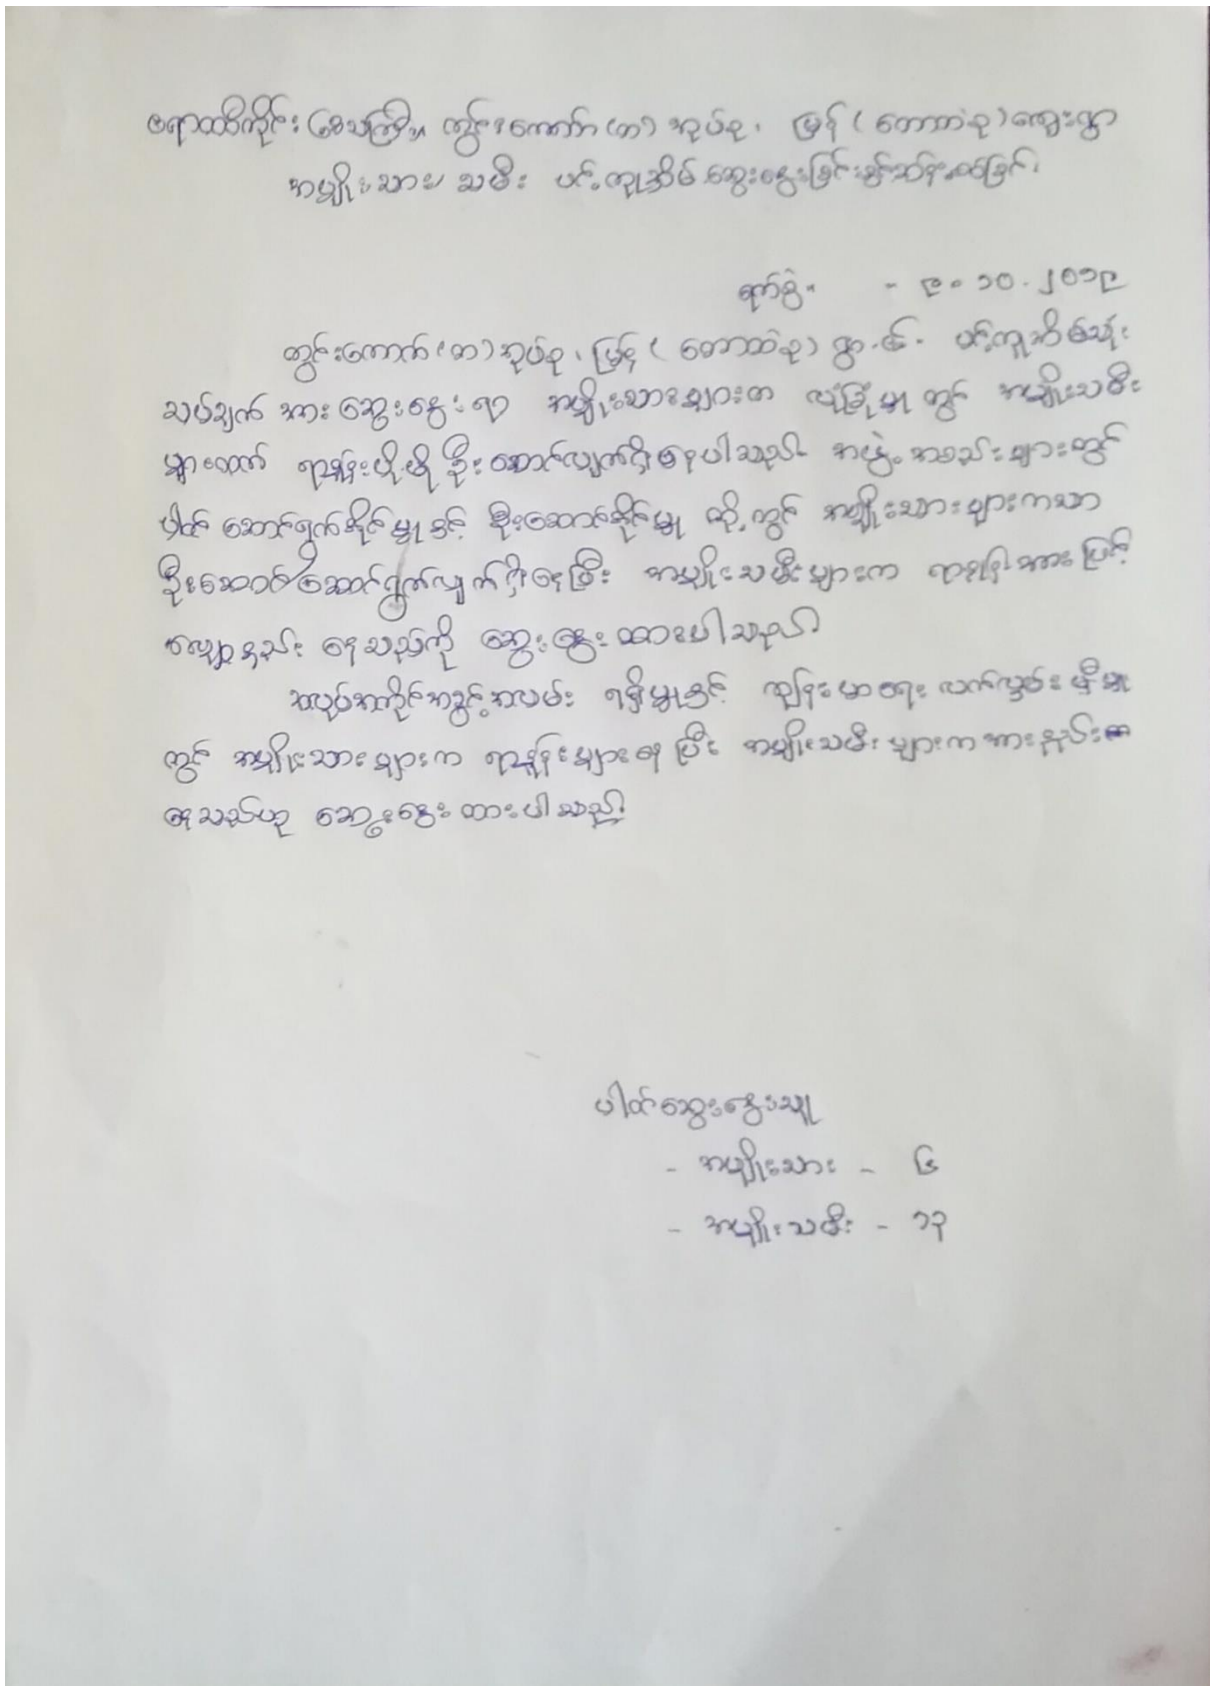 ဧရာဝတီတိုင်း၊ တွင်းကောက် (တ) အုပ်စု၊ မြိန် (တောထဲစု) ကျေးရွာ
အမျိုးသား/ သမီး ပင့်ကူအိမ် ဆွေးနွေးခြင်း
ရက်စွဲ။ - ၉.၁၀.၂၀၁၉
တွင်းကောက် (တ) အုပ်စု၊ မြိန် (တောထဲစု) ရွာ ပင့်ကူအိမ်သုံး
သပ်ချက် အား ဆွေးနွေးရာ အမျိုးသားများက လုံခြုံမှု တွင် အမျိုးသမီး
များထက် ရာခှုန်းပို၍ ဦးဆောင်လျက်ရှိနေပါသည်။ အဖွဲ့အစည်းများတွင်
ပါဝင် ဆောင်ရွက်နိုင်မှုနှင့် စုံးဆောင်နိုင်မှု တို့တွင် အမျိုးသားများကသာ
ဦးဆောင်ဆောင်ရွက်လျက်ရှိနေပြီး အမျိုးသမီးများက အားဖြင့်
လျော့နည်း နေသည်ကို ဆွေးနွေးထားပါသည်။
အလုပ်အကိုင်အခွင့်အလမ်း ရရှိမှုနှင့် ကျန်းမာရေး လက်လှမ်းမှီမှု
တွင် အမျိုးသားများက ရာခှုန်းများနေပြီး အမျိုးသမီးများက အားနည်း
နေသည်ဟု ဆွေးနွေးထားပါသည်။
ပါဝင်ဆွေးနွေးသူ
- အမျိုးသား - ၆
- အမျိုးသမီး - ၁၃